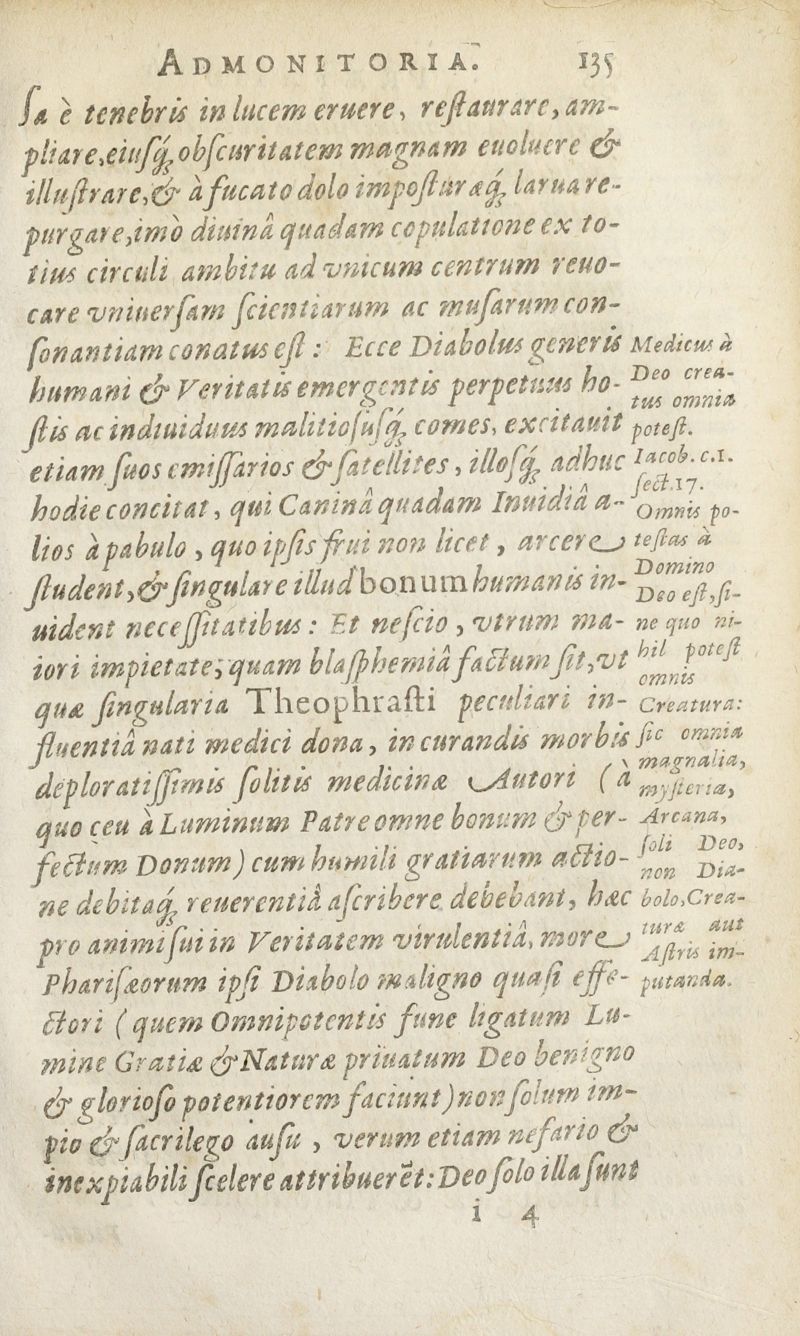 ADMONITORIA. 135
ſa è tenebris in lucem eruere, reſtaurare, am-
pliare, eiuſq́; obſcuritatem magnam euoluere &
illuſtrare, & à fucato dolo impoſturæq́; larua re-
purgare, imò diuinâ quadam copulatione ex to-
tius circuli ambitu ad vnicum centrum reuo-
care vniuerſam ſcientiarum ac muſarum con-
ſonantiam conatus eſt: Ecce Diabolus generis
humani & Veritatis emergentis perpetuus ho-
ſtis ac indiuiduus malitioſuſq́; comes, excitauit
etiam ſuos emiſſarios & ſatellites, illoſq́; adhuc
hodie concitat, qui Caninâ quadam Inuidiâ a-
lios à pabulo, quo ipſis frui non licet, arcere
ſtudent, & ſingulare illud bonum humanis in-
uident neceſſitatibus: Et neſcio, vtrum ma-
iori impietate, quam blaſphemiâ factum ſit, vt
quæ ſingularia Theophraſti peculiari in-
fluentiâ nati medici dona, in curandis morbis
deploratiſſimis ſolitis medicinæ Autori (à
quo ceu à Luminum Patre omne bonum & per-
fectum Donum) cum humili gratiarum actio-
ne debitaq́; reuerentiâ aſcribere debebant, hæc
pro animi ſui in Veritatem virulentiâ, more
Phariſæorum ipſi Diabolo maligno quaſi effe-
ctori (quem Omnipotentis fune ligatum Lu-
mine Gratiæ & Naturæ priuatum Deo benigno
& glorioſo potentiorem faciunt) non ſolum im-
pio & ſacrilego auſu, verum etiam nefario &
inexpiabili ſcelere attribuerēt: Deo ſolo illa ſunt
i 4
Medicus à
Deo crea-
tus omnia
poteſt.
Iacob. c.1.
ſect.17.
Omnis po-
teſtas à
Domino
Deo eſt, ſi-
ne quo ni-
hil poteſt
omnis
Creatura:
ſic omnia
magnalia,
myſteria,
Arcana,
ſoli Deo,
non Dia-
bolo, Crea-
turæ aut
Aſtris im-
putanda.